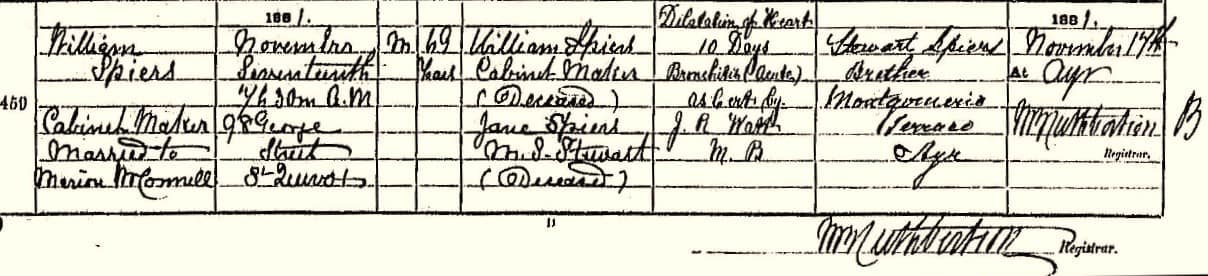 1881.
Dilatation of Heart
1881.
William
November
M
69
William Spiers
10 Days
Stewart Spiers
November 17th
Spiers
Seventeenth
Years
Cabinet Maker
Bronchitis (Acute)
Brother
At Ayr
7h 30m A.M
(Deceased)
As Cert. by
Montgomerie
460
Cabinet Maker
98 George
Jane Spiers
J. R
M. B
Terrace
Wm Cuthbertson
B
Married to
Street
M. S. Stewart
Ayr
Registrar.
Marion McConnell
St Quivox
(Deceased)
11
Wm Cuthbertson
Registrar.